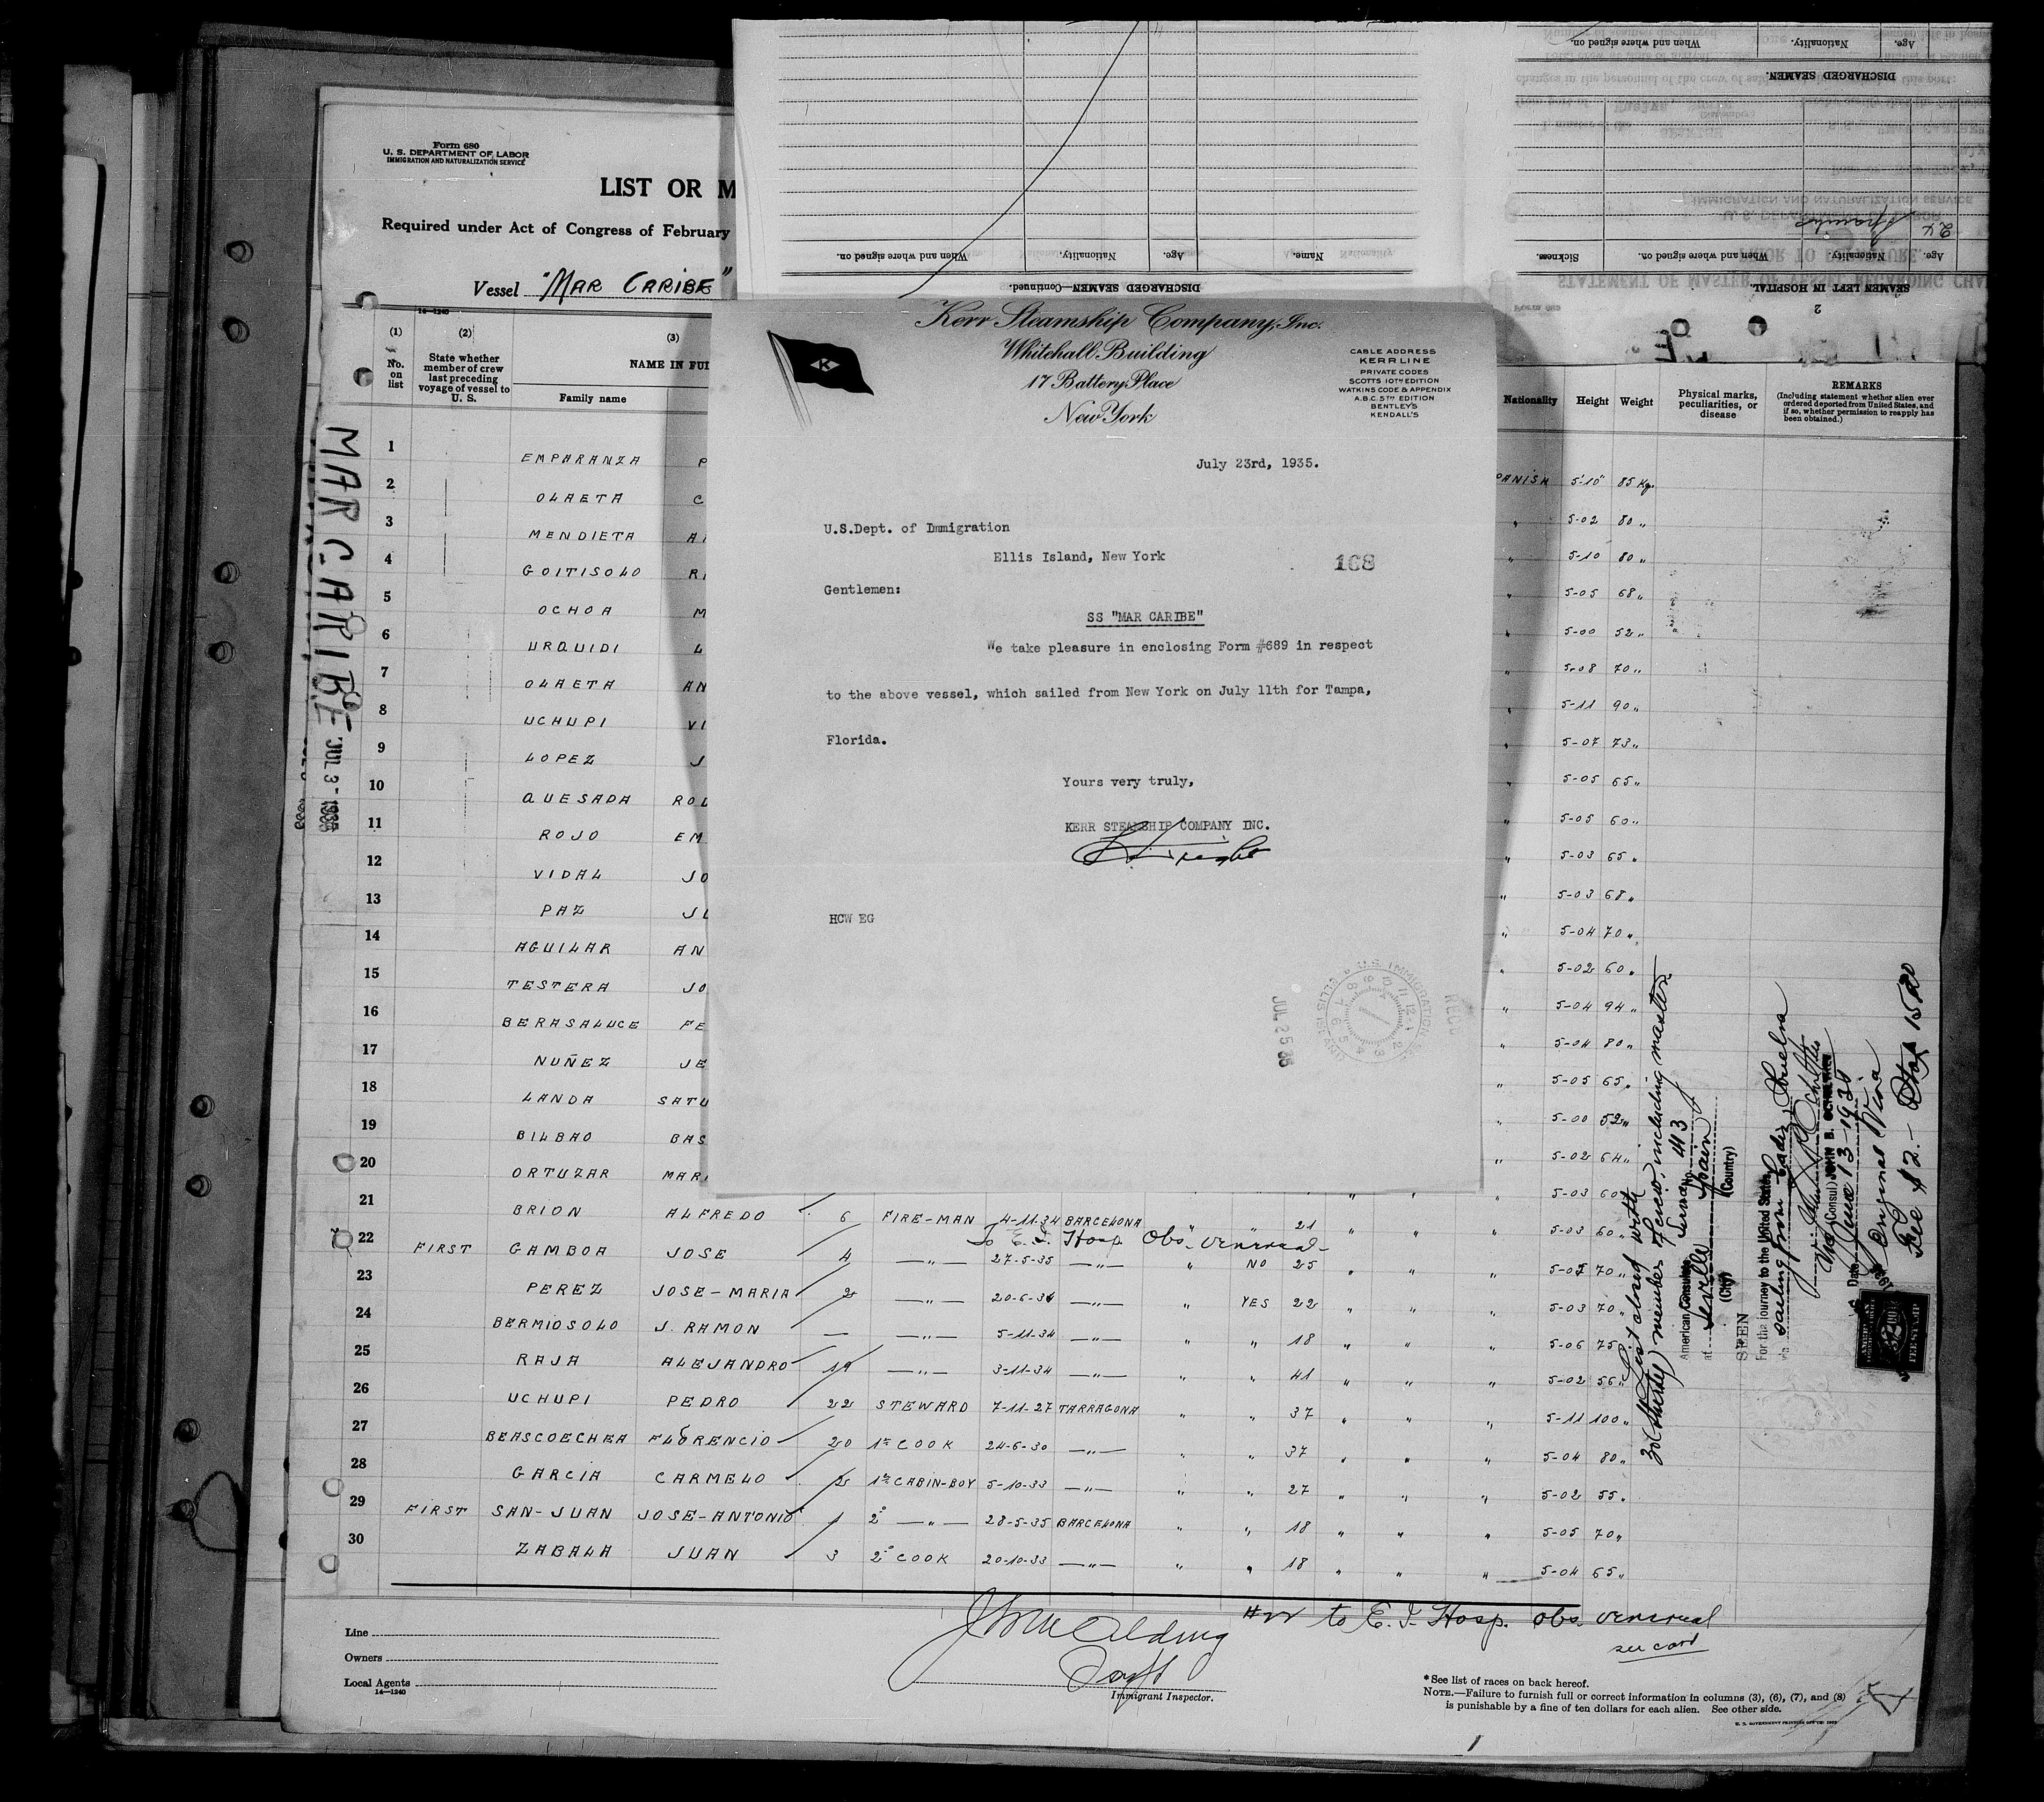 Form 680
U. S. DEPARTMENT OF LABOR
IMMIGRATION AND NATURALIZATION SERVICE
LIST OR M
Required under Act of Congress of February
Vessel "MAR CARIBE"
14—1240
(1) (2) (3)
No. on list
State whether member of crew last preceding voyage of vessel to U. S.
NAME IN FUL
Family name
Nationality Height Weight
Physical marks, peculiarities, or disease
REMARKS
(Including statement whether alien ever ordered deported from United States, and if so, whether permission to reapply has been obtained.)
When and where signed on. Nationality. Age. Name.
DISCHARGED SEAMEN—Continued.
When and where signed on. Nationality. Age.
DISCHARGED SEAMEN.
Sickness. When and where signed on. Nationality. Age.
SEAMEN LEFT IN HOSPITAL.
2
Kerr Steamship Company, Inc.
Whitehall Building
17 Battery Place
New York
K
CABLE ADDRESS
KERRLINE
PRIVATE CODES
SCOTTS 10TH EDITION
WATKINS CODE & APPENDIX
A.B.C. 5TH EDITION
BENTLEY'S
KENDALL'S
July 23rd, 1935.
U.S.Dept. of Immigration
Ellis Island, New York
168
Gentlemen:
SS "MAR CARIBE"
We take pleasure in enclosing Form #689 in respect
to the above vessel, which sailed from New York on July 11th for Tampa,
Florida.
Yours very truly,
KERR STEAMSHIP COMPANY INC.
HCW EG
JUL 25 35
U.S. IMMIGRATION
MAR CARIBE JUL 3- 1935
1 EMPARANZA P PANISH 5-10" 85 Kg.
2 OLAETA C " 5-02 80 "
3 MENDIETA A " 5-10 80 "
4 GOITISOLO R " 5-05 68 "
5 OCHOA M " 5-00 52 "
6 URQUIDI L 5-08 70 "
7 OLAETA AN " 5-11 90 "
8 UCHUPI VI " 5-07 73 "
9 LOPEZ J " 5-05 65 "
10 QUESADA ROD " 5-05 60 "
11 ROJO EM " 5-03 65 "
12 VIDAL JO " 5-03 68 "
13 PAZ JU " 5-04 70 "
14 AGUILAR AN " 5-02 60 "
15 TESTERA JO " 5-04 94 "
16 BERASALUCE FE " 5-04 80 "
17 NUÑEZ JE " 5-05 65 "
18 LANDA SATU " 5-00 52 "
19 BILBAO BAS " 5-02 64 "
20 ORTUZAR MAR " 5-03 60 "
21 BRION ALFREDO 6 FIRE-MAN 4-11-34 BARCELONA " " 21 " " " 5-03 60 "
To E. I. Hosp. Obs- venereal-
22 FIRST GAMBOA JOSE 4 —"— 27-5-35 —"— " NO 25 " " " 5-07 70 "
23 PEREZ JOSE-MARIA 2 —"— 20-6-34 —"— " YES 22 " " " 5-03 70 "
24 BERMIOSOLO J. RAMON — —"— 5-11-34 —"— " " 18 " " " 5-06 75 "
25 RAJA ALEJANDRO 19 —"— 3-11-34 —"— " " 41 " " " 5-02 56 "
26 UCHUPI PEDRO 22 STEWARD 7-11-27 TARRAGONA " " 37 " " " 5-11 100 "
27 BEASCOECHEA FLORENCIO 20 1º COOK 24-6-30 —"— " " 37 " " " 5-04 80 "
28 GARCIA CARMELO 2 1º CABIN-BOY 5-10-33 —"— " " 27 " " " 5-02 55 "
29 FIRST SAN-JUAN JOSE-ANTONIO 1 2º —"— 28-5-35 BARCELONA " " 18 " " " 5-05 70 "
30 ZABALA JUAN 3 2º COOK 20-10-33 —"— " " 18 " " " 5-04 65 "
List closed with
30 (thirty) members of crew, including master.
American Consulate Serv. No. 443
at Seville Spain
(City) (Country)
SEEN
For the journey to the United States
via sailing from Cadiz, Huelva
Vice Consul JOHN B. OCHELTREE
Date June 13-1935
Original Visa
Fee $2.-
FEE STAMP
#22 to E. I. Hosp. Obs. venereal
see card
Line
Owners
Local Agents
14—1240
Immigrant Inspector.
*See list of races on back hereof.
NOTE.—Failure to furnish full or correct information in columns (3), (6), (7), and (8)
is punishable by a fine of ten dollars for each alien. See other side.